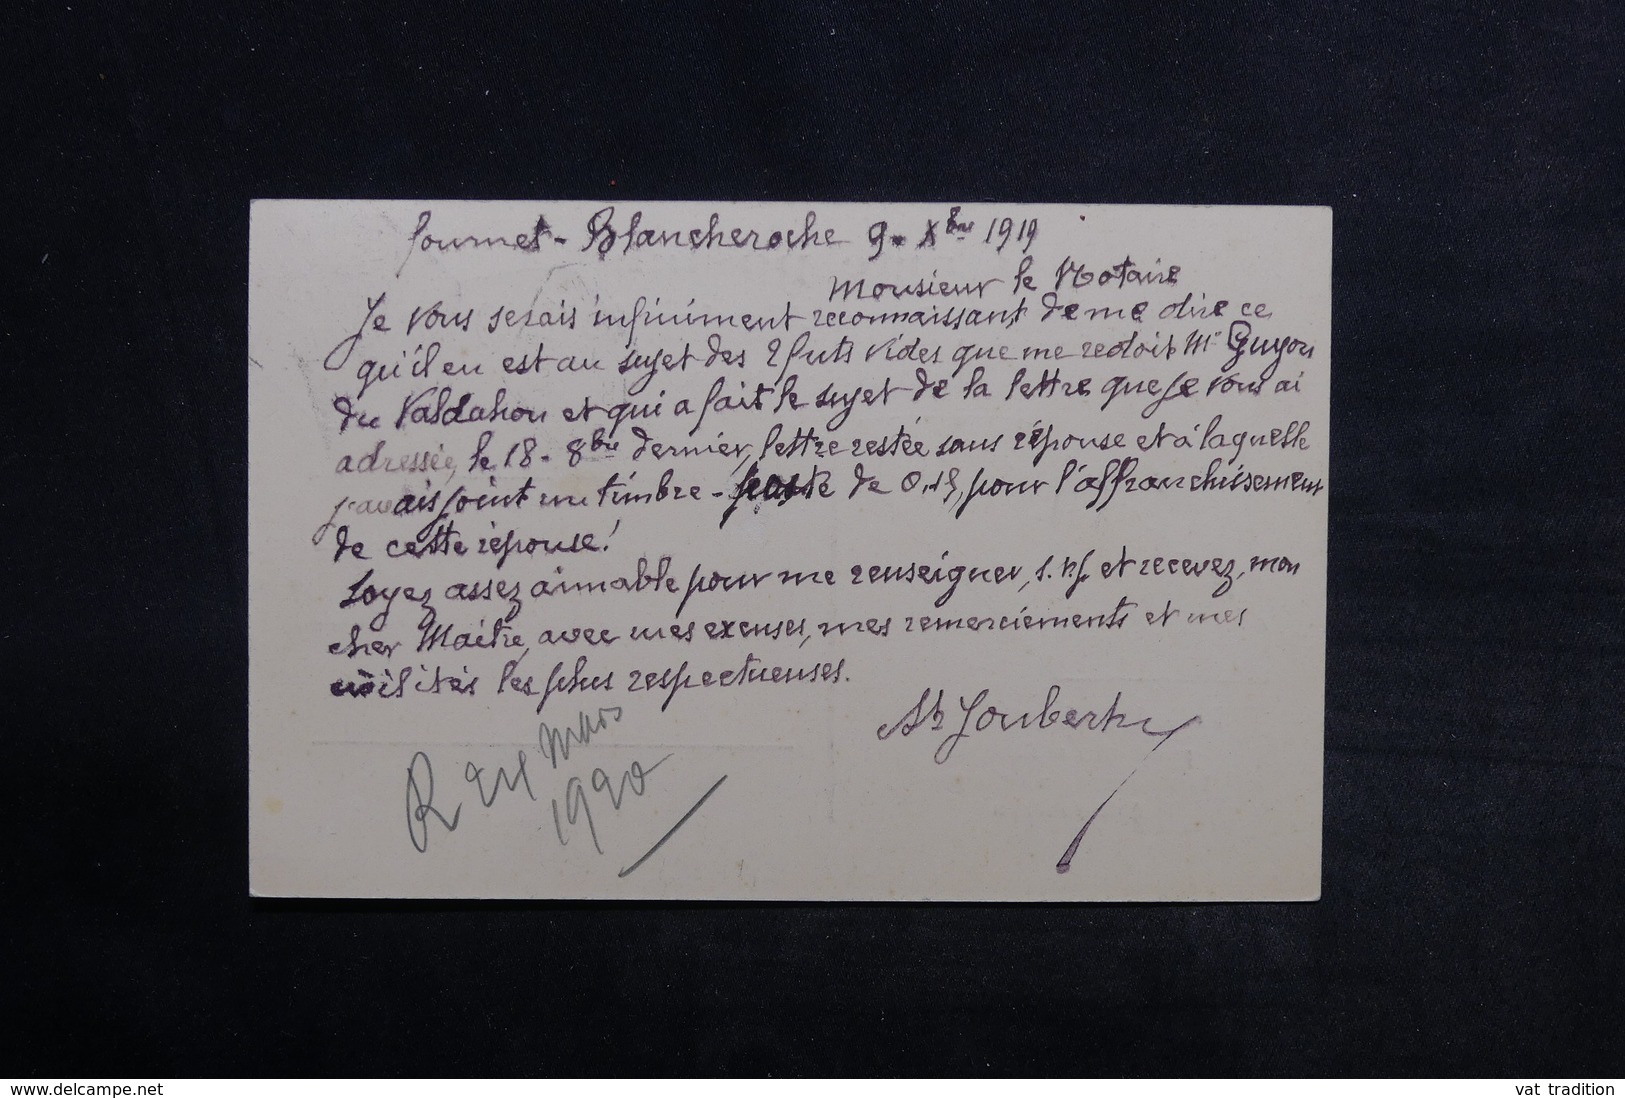 fournet-Blancheroche 9. Xbre 1919
Monsieur le Notaire
Je vous serais infiniment reconnaissant de me dire ce
qu'il en est au sujet des 2 futs vides que me redoit Mr Guyon
du Valdahon et qui a fait le sujet de la lettre que je vous ai
adressée, le 18-8bre dernier, lettre restée sans réponse et à laquelle
j'avais joint un timbre-poste de 0.15, pour l'affranchissement
de cette réponse!
Soyez assez aimable pour me renseigner, s.v.p. et recevez, mon
cher Maître, avec mes excuses, mes remerciements et mes
civilités les plus respectueuses.
Joubert
R 24 Mars
1920
www.delcampe.net
vat_tradition